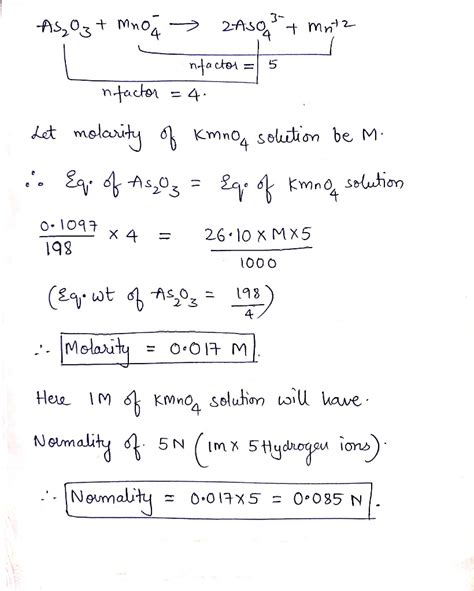 As₂O₃ + MnO₄⁻ → 2ASO₄³⁻ + Mn⁺²
nfactor = 5
nfactor = 4.
Let molarity of KmnO₄ solution be M.
∴ Eq. of As₂O₃ = Eq. of KmnO₄ solution
0.1097/198 × 4 = 26.10 × M × 5/1000
(Eq. wt of As₂O₃ = 198/4)
∴ Molarity = 0.017 M.
Here 1M of KmnO₄ solution will have.
Normality of 5N (1m × 5 Hydrogen ions).
∴ Normality = 0.017×5 = 0.085 N.